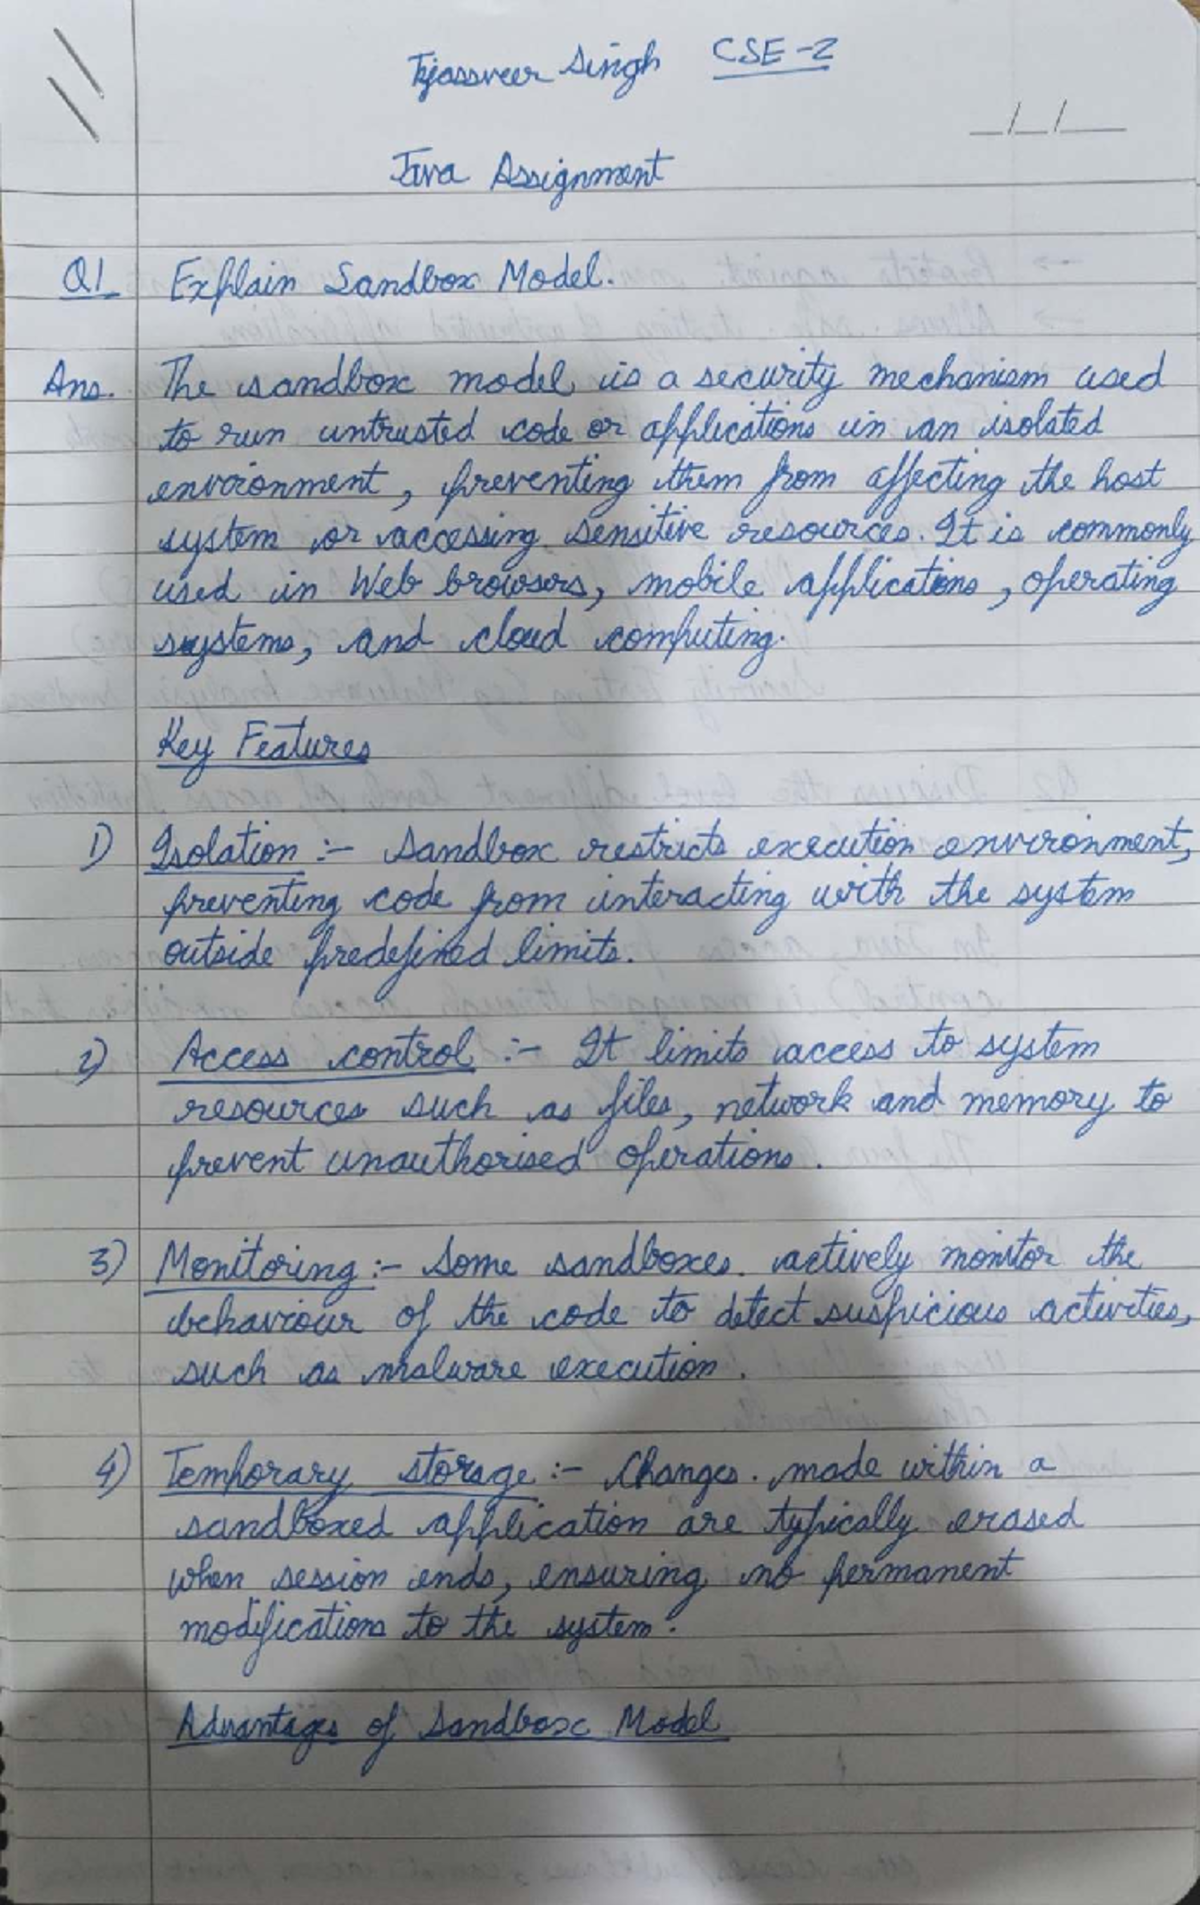 Tejassveer Singh CSE-2
_/_/__
Java Assignment
Q1 Explain Sandbox Model.
Ans. The sandbox model is a security mechanism used
to run untrusted code or applications in an isolated
environment, preventing them from affecting the host
system or accessing sensitive resources. It is commonly
used in Web browsers, mobile applications, operating
systems, and cloud computing.
Key Features
1) Isolation :- Sandbox restricts execution environment,
preventing code from interacting with the system
outside predefined limits.
2) Access control :- It limits access to system
resources such as files, network and memory to
prevent unauthorised operations.
3) Monitoring :- Some sandboxes actively monitor the
behaviour of the code to detect suspicious activities,
such as malware execution.
4) Temporary storage :- Changes made within a
sandboxed application are typically erased
when session ends, ensuring no permanent
modifications to the system.
Advantages of Sandbox Model